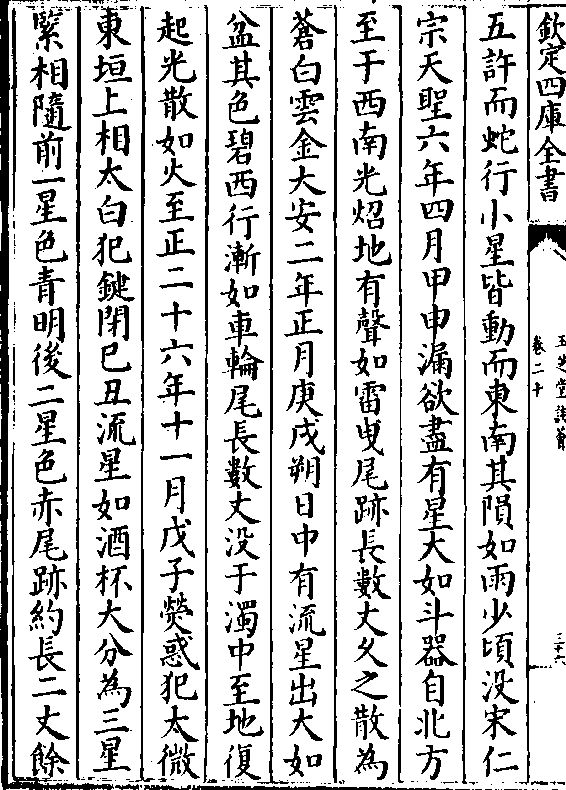 欽定四庫全書
卷二十
三十六
五許而蛇行小星皆動而東南其隕如雨少頃没宋仁
宗天聖六年四月甲申漏欲盡有星大如斗器自北方
至于西南光炤地有聲如雷曳尾跡長數丈久之散為
蒼白雲金大安二年正月庚戌朔日中有流星出大如
盆其色碧西行漸如車輪尾長數丈没于濁中至地復
起光散如火至正二十六年十一月戊子熒惑犯太微
東垣上相太白犯鍵閉己丑流星如酒杯大分為三星
緊相隨前一星色青明後二星色赤尾跡約長二丈餘